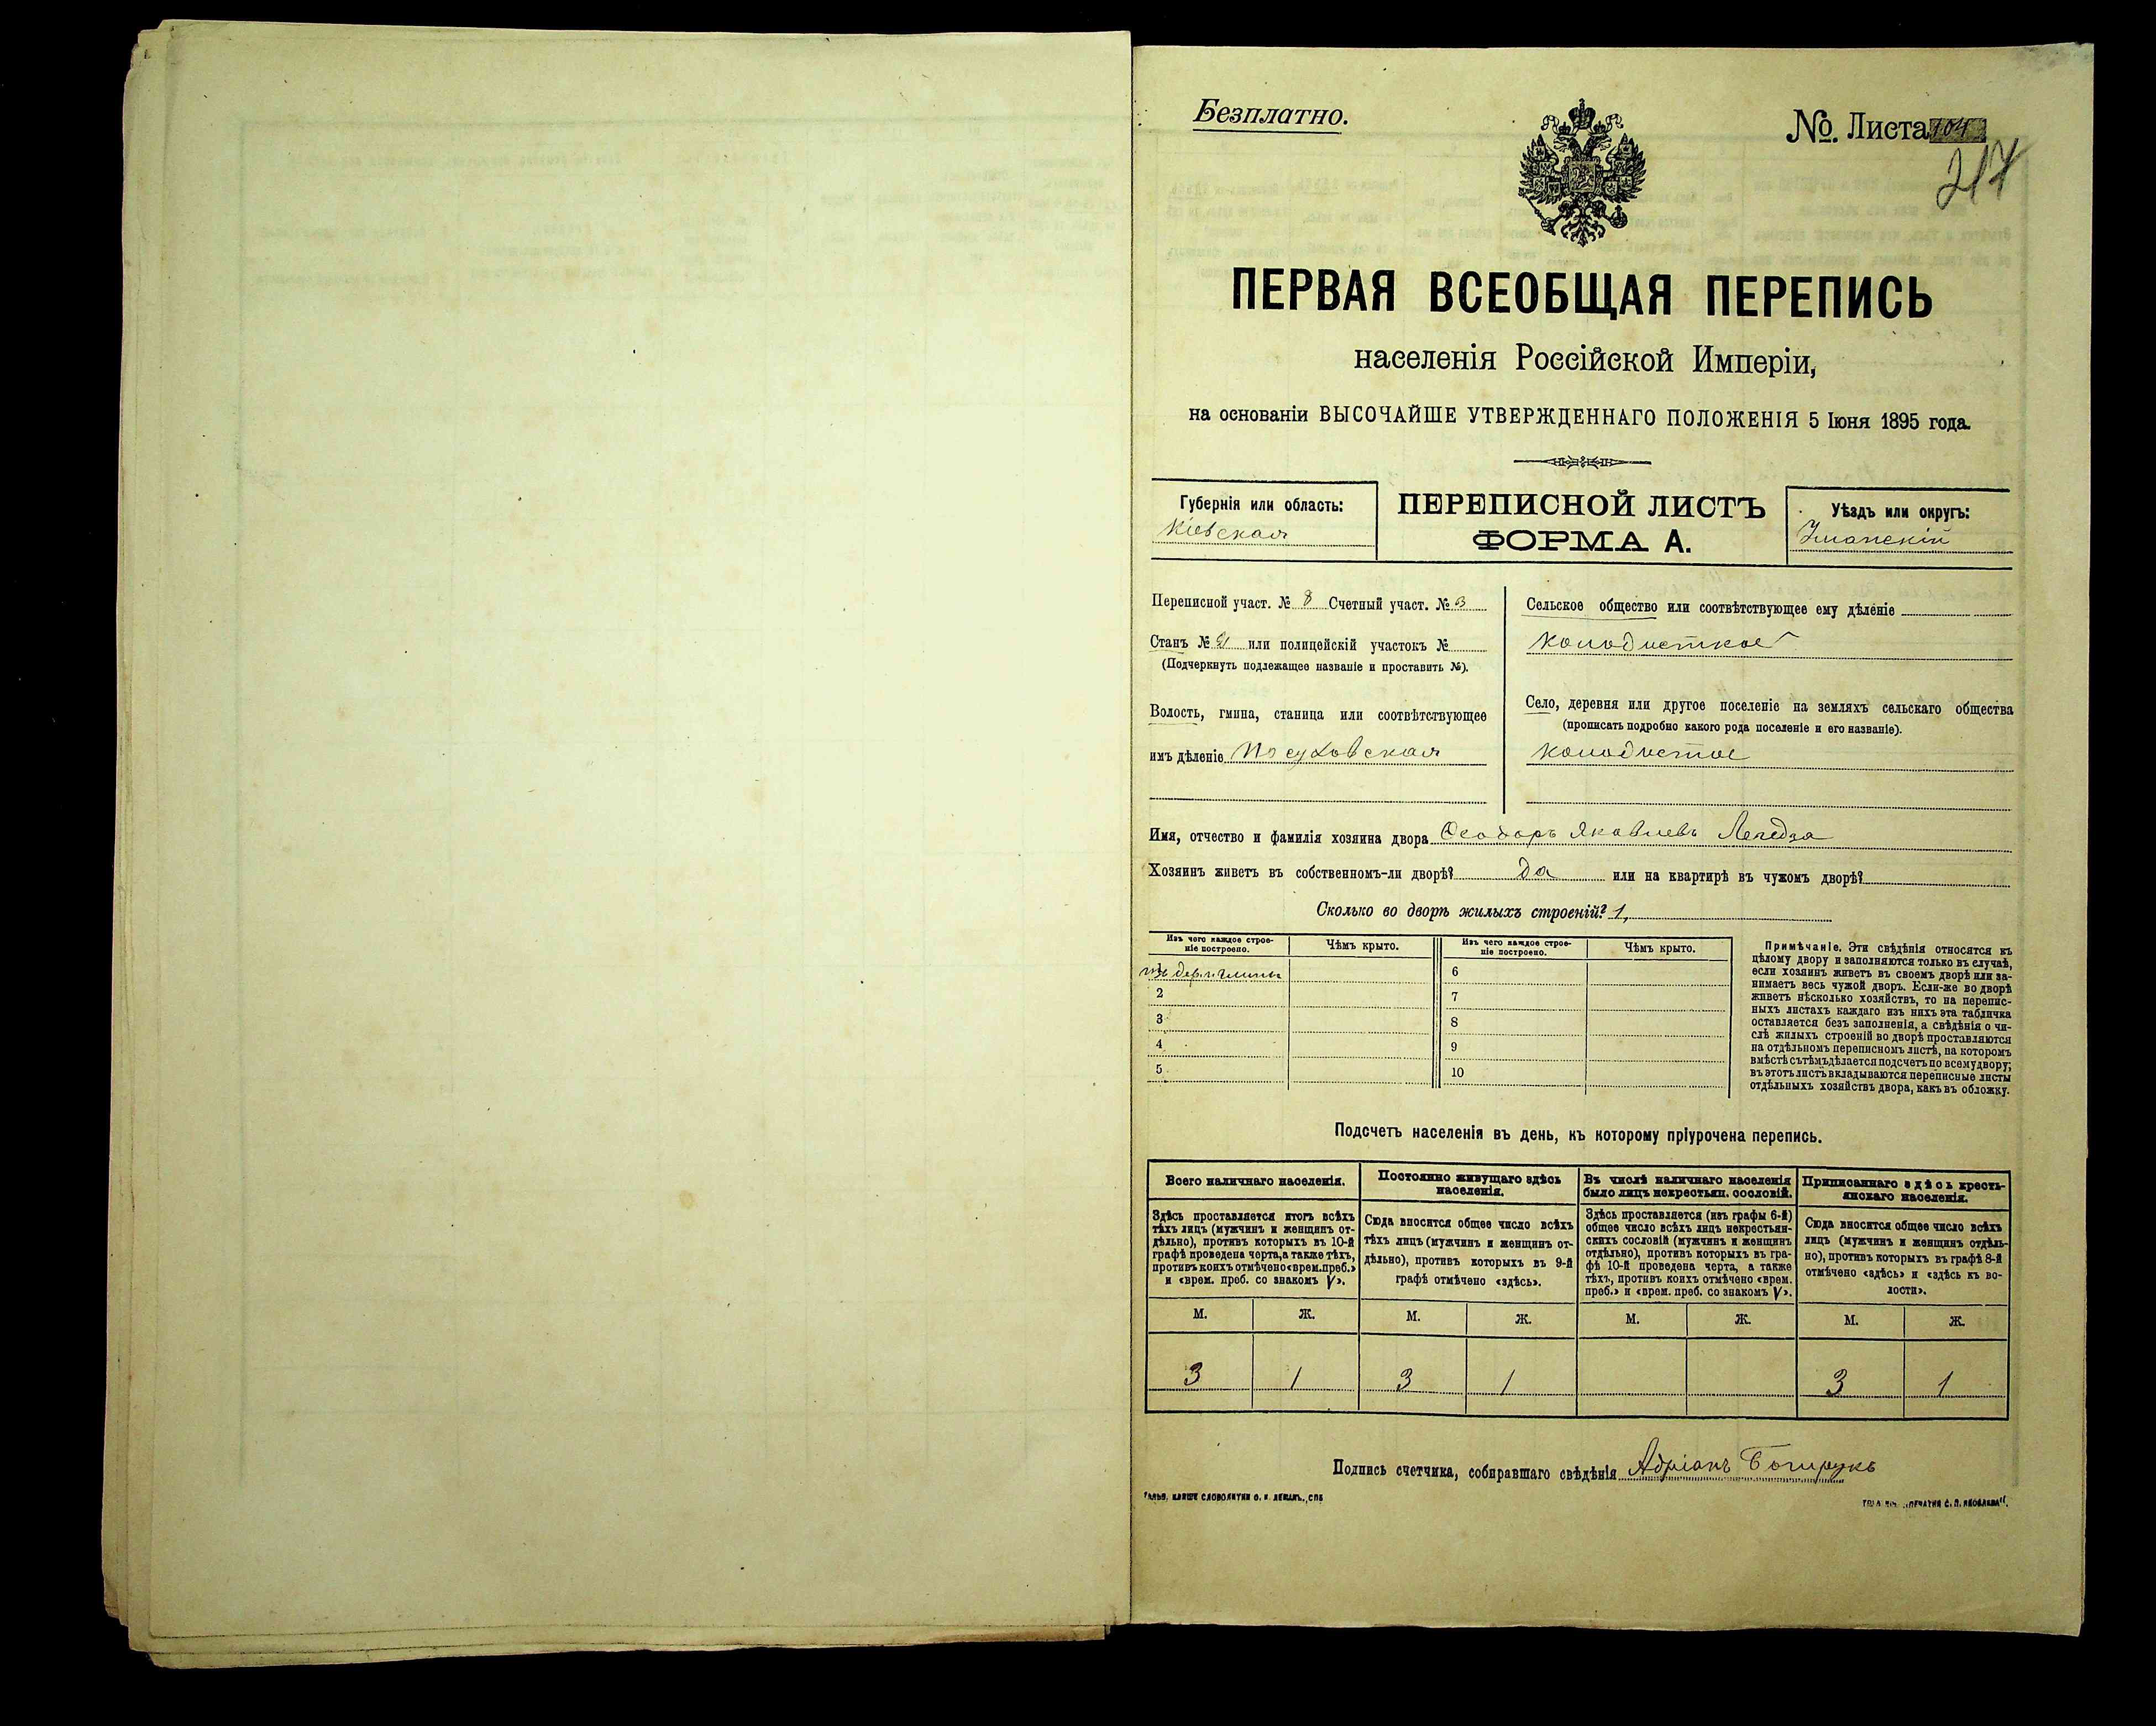 Безплатно.
№. Листа 104
217
ПЕРВАЯ ВСЕОБЩАЯ ПЕРЕПИСЬ
населенія Россійской Имперіи,
на основаніи ВЫСОЧАЙШЕ УТВЕРЖДЕННАГО ПОЛОЖЕНІЯ 5 Іюня 1895 года.
Губернія или область:
Кіевская
ПЕРЕПИСНОЙ ЛИСТЪ
ФОРМА А.
Уѣздъ или округъ:
Уманскій
Переписной участ. № 8 Счетный участ. № 3
Станъ № 2 или полицейскій участокъ №
(Подчеркнуть подлежащее названіе и проставить №).
Волость, гмина, станица или соотвѣтствующее
имъ дѣленіе Посуховская
Сельское общество или соотвѣтствующее ему дѣленіе
Колодисткое
Село, деревня или другое поселеніе на земляхъ сельскаго общества
(прописать подробно какого рода поселеніе и его названіе).
Колодистое
Имя, отчество и фамилія хозяина двора Ѳеодоръ Яковлевъ
Хозяинъ живетъ въ собственномъ-ли дворѣ? да или на квартирѣ въ чужомъ дворѣ?
Сколько во дворѣ жилыхъ строеній? 1,
Изъ чего каждое строе-
ніе построено.
Чѣмъ крыто.
Изъ чего каждое строе-
ніе построено.
Чѣмъ крыто.
изъ дер. и глины
6
2
7
3
8
4
9
5
10
Примѣчаніе. Эти свѣдѣнія относятся къ
цѣлому двору и заполняются только въ случаѣ,
если хозяинъ живетъ въ своемъ дворѣ или за-
нимаетъ весь чужой дворъ. Если-же во дворѣ
живетъ нѣсколько хозяйствъ, то на перепис-
ныхъ листахъ каждаго изъ нихъ эта табличка
оставляется безъ заполненія, а свѣдѣнія о чи-
слѣ жилыхъ строеній во дворѣ проставляются
на отдѣльномъ переписномъ листѣ, на которомъ
вмѣстѣ съ тѣмъ дѣлается подсчетъ по всему двору;
въ этотъ листъ вкладываются переписные листы
отдѣльныхъ хозяйствъ двора, какъ въ обложку.
Подсчетъ населенія въ день, къ которому пріурочена перепись.
Всего наличнаго населенія.
Здѣсь проставляется итогъ всѣхъ
тѣхъ лицъ (мужчинъ и женщинъ от-
дѣльно), противъ которыхъ въ 10-й
графѣ проведена черта, а также тѣхъ,
противъ коихъ отмѣчено «врем. преб.»
и «врем. преб. со знакомъ V».
Постоянно живущаго здѣсь
населенія.
Сюда вносится общее число всѣхъ
тѣхъ лицъ (мужчинъ и женщинъ от-
дѣльно), противъ которыхъ въ 9-й
графѣ отмѣчено «здѣсь».
Въ числѣ наличнаго населенія
было лицъ некрестьян. сословій.
Здѣсь проставляется (изъ графы 6-й)
общее число всѣхъ лицъ некрестьян-
скихъ сословій (мужчинъ и женщинъ
отдѣльно), противъ которыхъ въ гра-
фѣ 10-й проведена черта, а также
тѣхъ, противъ коихъ отмѣчено «врем.
преб.» и «врем. преб. со знакомъ V».
Приписаннаго здѣсь кресть-
янскаго населенія.
Сюда вносится общее число всѣхъ
лицъ (мужчинъ и женщинъ отдѣль-
но), противъ которыхъ въ графѣ 8-й
отмѣчено «здѣсь» и «здѣсь къ во-
лости».
М. Ж. М. Ж. М. Ж. М. Ж.
3 1 3 1 3 1
Подпись счетчика, собиравшаго свѣдѣнія Адріанъ